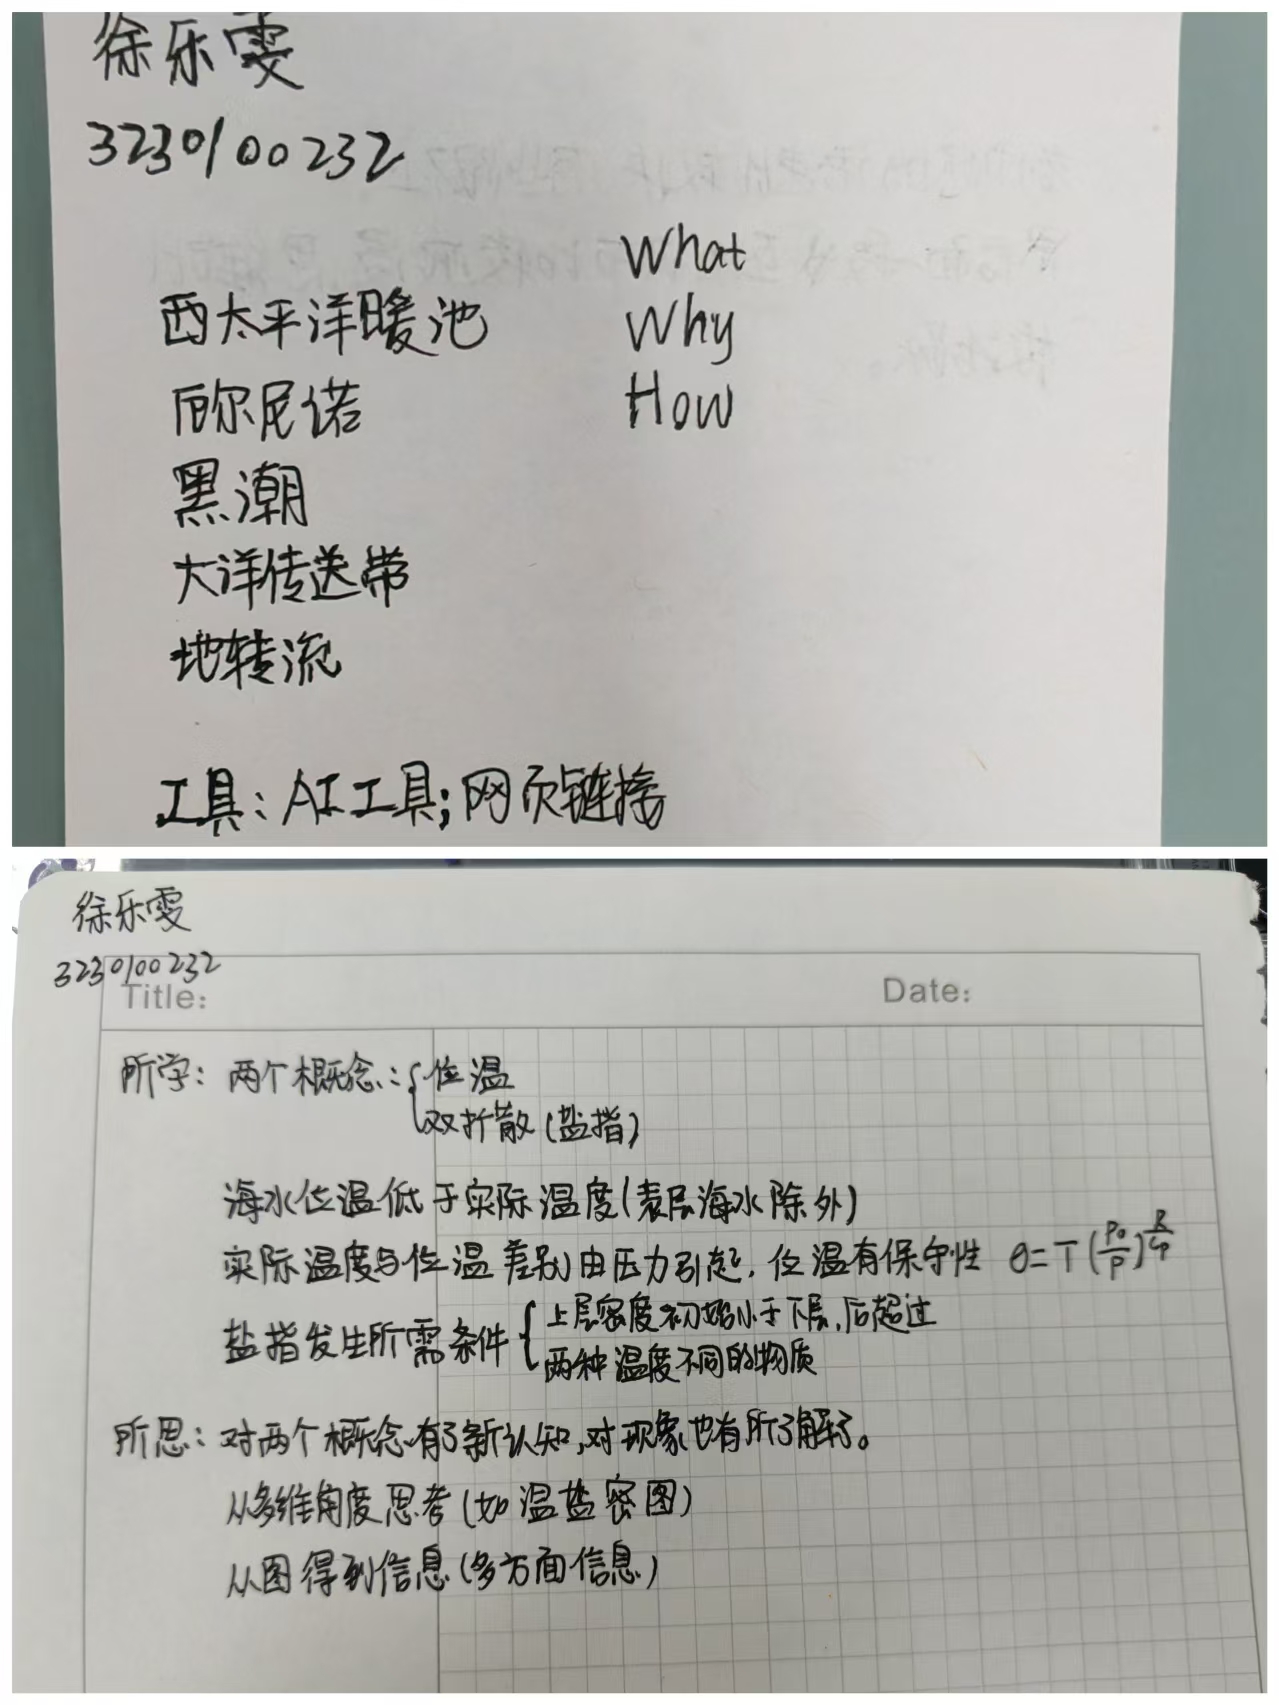 徐乐雯
3230100232
What
西太平洋暖池 Why
厄尔尼诺 How
黑潮
大洋传送带
地转流
工具：AI工具；网页链接
徐乐雯
3230100232
Title:
Date:
所学：两个概念：{位温
双扩散（盐指）
海水位温低于实际温度（表层海水除外）
实际温度与位温差别由压力引起，位温有保守性 θ=T(P₀/P)^(R/Cp)
盐指发生所需条件{上层密度初始小于下层，后超过
两种温度不同的物质
所思：对两个概念有了新认知，对现象也有所了解了。
从多维角度思考（如温盐密图）
从图得到信息（多方面信息）